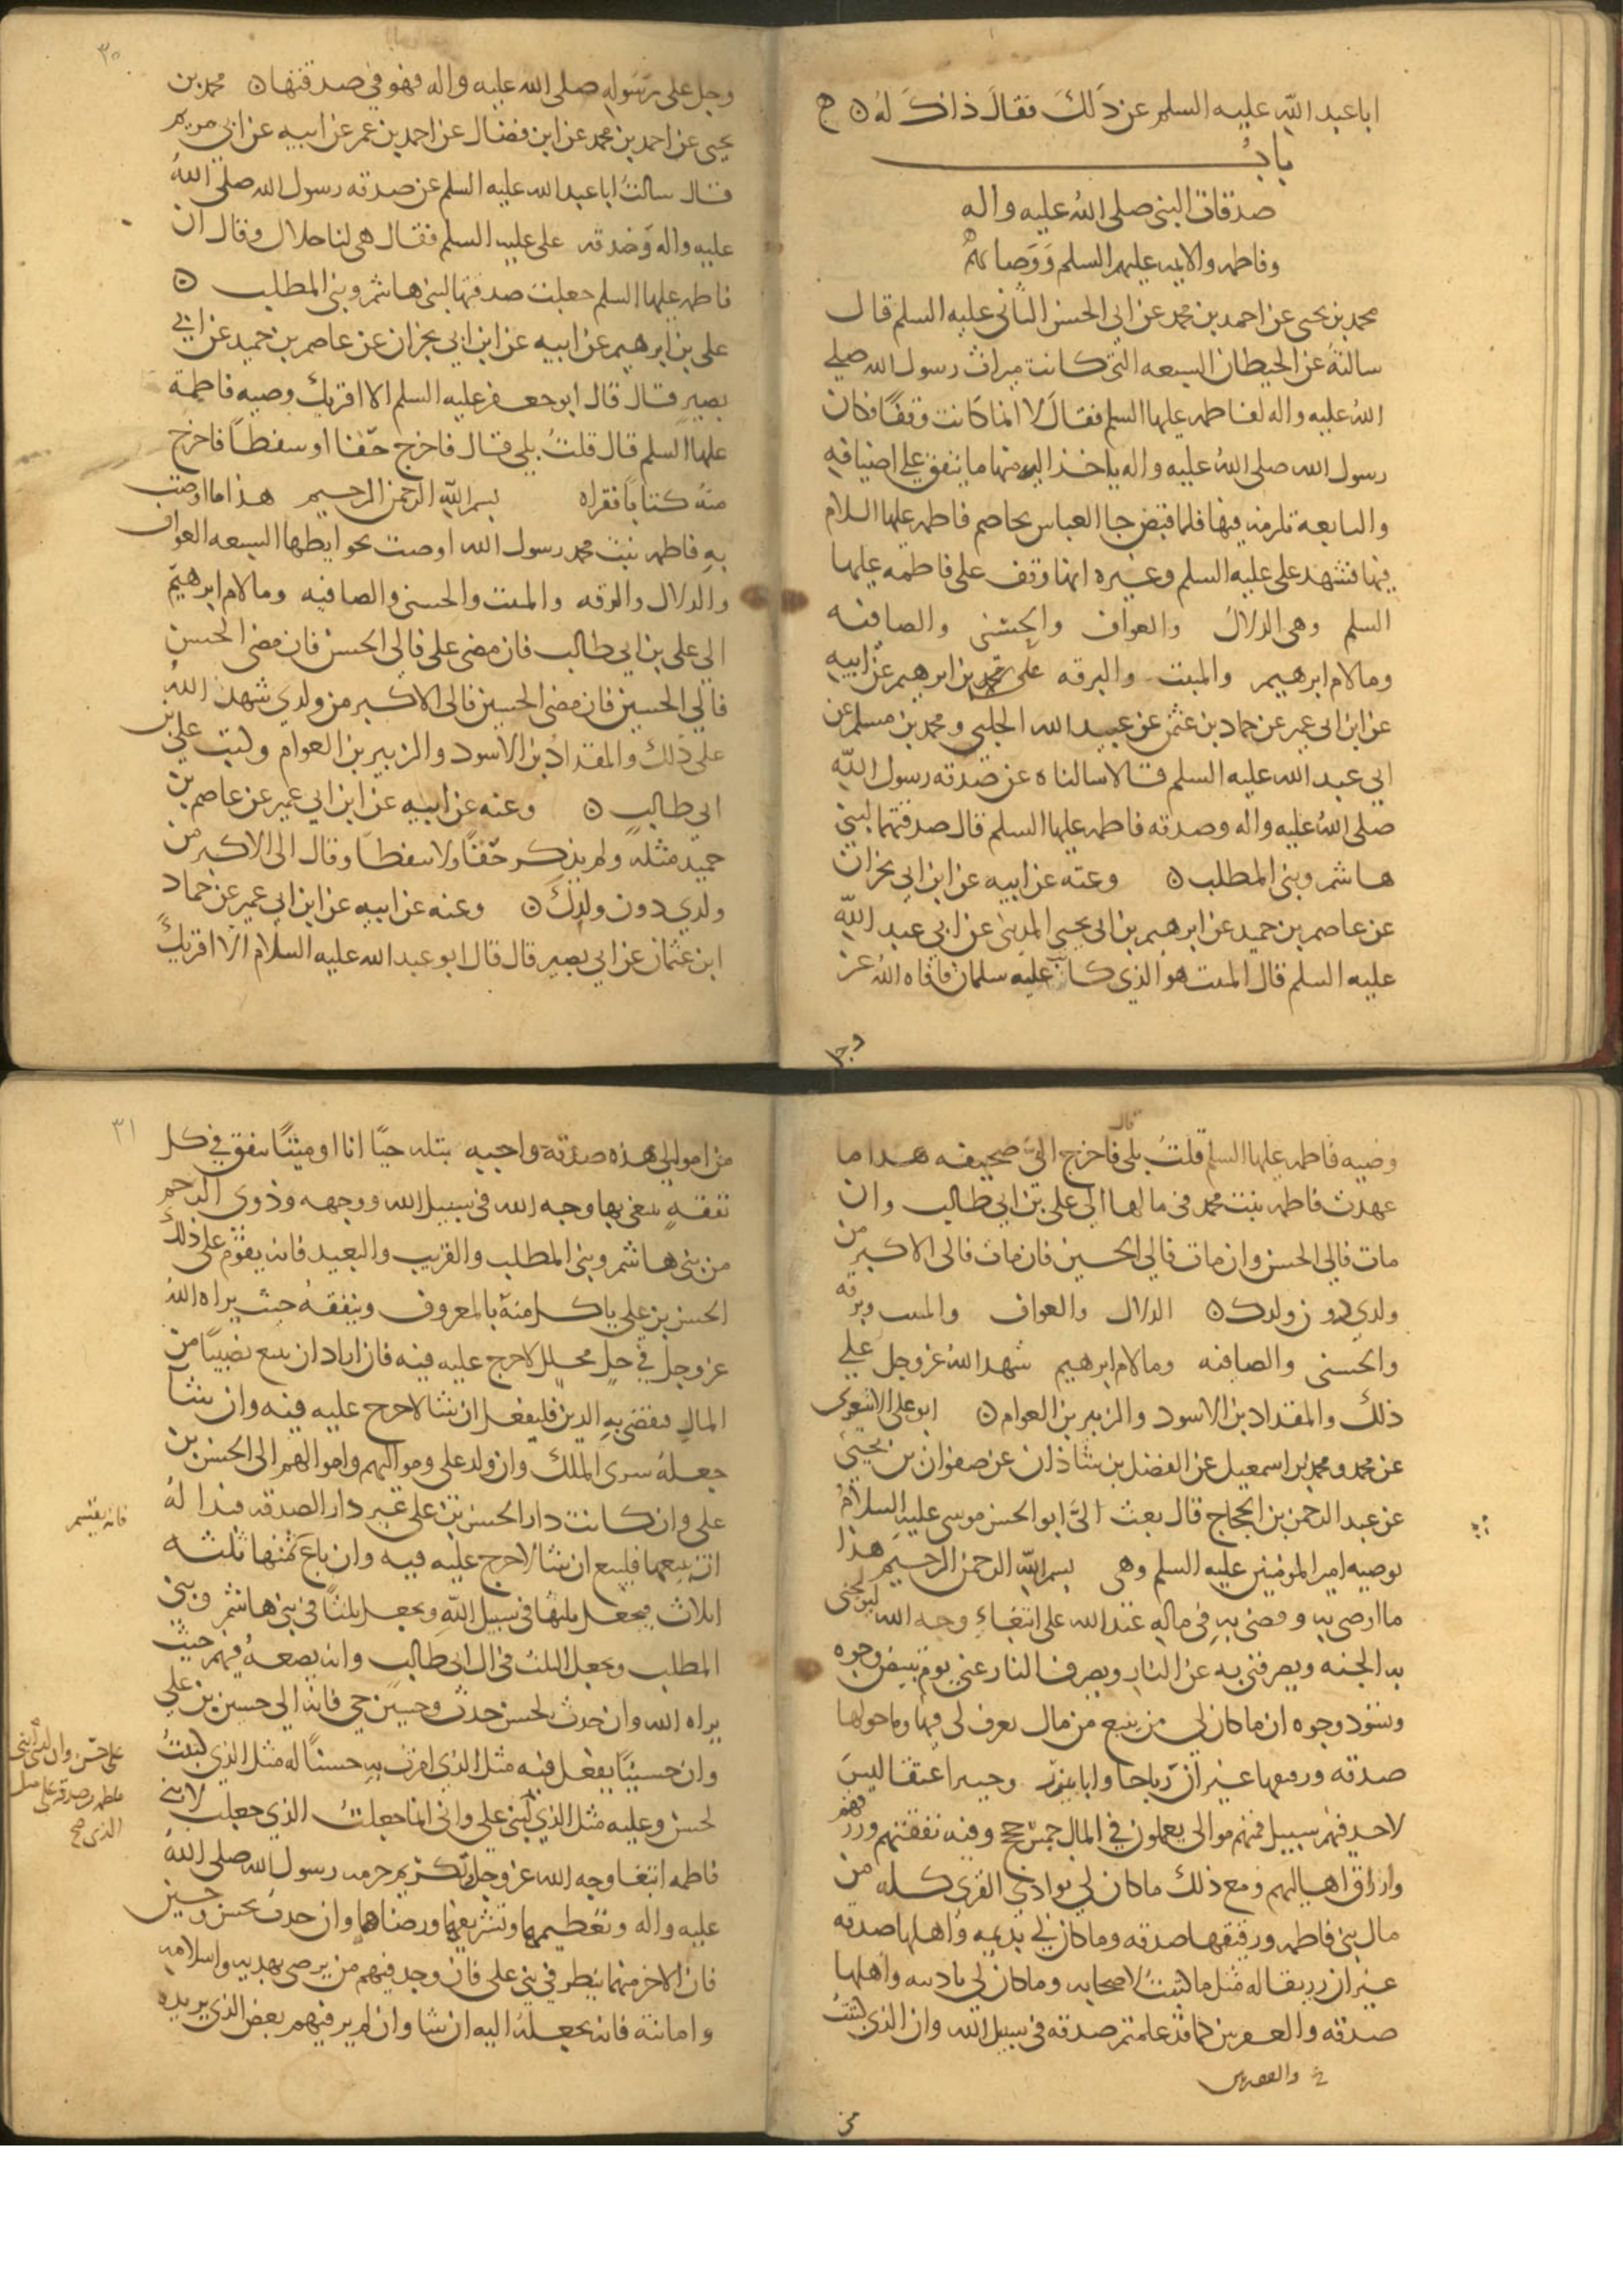 ابا عبد الله عليه السلم عن ذلك فقال ذاك له ن ج
باب
صدقات النبي صلى الله عليه واله
وفاطمه والايمه عليهم السلم ووصاياهم
محمد بن يحيى عن احمد بن محمد عن ابي الحسن الثاني عليه السلم قال
سالته عن الحيطان السبعه التي كانت ميراث رسول الله صلى
الله عليه واله لفاطمه عليها السلم فقال لا انما كانت وقفًا فكان
رسول الله صلى الله عليه واله ياخذ اليه منها ما ينفق على اضيافه
والتابعة تلزمه فيها فلما قبض جا العباس يخاصم فاطمه عليها السلام
فيها فشهد على عليه السلم وغيره انها وقف على فاطمه عليها
السلم وهي الدلال والعواف والحسنى والصافيه
ومالام ابرهيم والميثب والبرقه على بن ابرهيم عن ابيه
عن ابن ابي عمير عن حماد بن عثمن عن عبيد الله الحلبي ومحمد بن مسلم عن
ابي عبد الله عليه السلم قالا سالناه عن صدقه رسول الله
صلى الله عليه واله وصدقه فاطمه عليها السلم قال صدقتهما لبني
هاشم وبني المطلب ن وعنه عن ابيه عن ابن ابي نجران
عن عاصم بن حميد عن ابرهيم بن ابي يحيى المديني عن ابي عبد الله
عليه السلم قال الميثب هو الذي كاتب عليه سلمان فافاه الله عز
وجل
٣٠
وجل على رسوله صلى الله عليه واله فهو في صدقتها ن محمد بن
يحيى عن احمد بن محمد عن ابن فضال عن احمد بن عمر عن ابيه عن ابي مريم
قال سالت ابا عبد الله عليه السلم عن صدقه رسول الله صلى الله
عليه واله وصدقه على عليه السلم فقال هي لنا حلال وقال ان
فاطمه عليها السلم جعلت صدقتها لبني هاشم وبني المطلب ن
على بن ابرهيم عن ابيه عن ابن ابي نجران عن عاصم بن حميد عن ابي
بصير قال قال ابو جعفر عليه السلم الا اقريك وصيه فاطمة
عليها السلم قال قلت بلى قال فاخرج حقًا او سفطًا فاخرج
منه كتابًا فقراه بسم الله الرحمن الرحيم هذا ما اوصت
به فاطمه بنت محمد رسول الله اوصت بحوايطها السبعه العواف
والدلال والبرقه والميثب والحسنى والصافيه ومالام ابرهيم
الى على بن ابي طالب فان مضى على فالى الحسن فان مضى الحسن
فالى الحسين فان مضى الحسين فالى الاكبر من ولدي شهد الله
على ذلك والمقداد بن الاسود والزبير بن العوام وكتب على بن
ابي طالب ن وعنه عن ابيه عن ابن ابي عمير عن عاصم بن
حميد مثله ولم يذكر حقًا ولا سفطًا وقال الى الاكبر من
ولدي دون ولدك ن وعنه عن ابيه عن ابن ابي عمير عن حماد
ابن عثمان عن ابي بصير قال قال ابو عبد الله عليه السلام الا اقريك
وصيه فاطمه عليها السلم قلت بلى قال فاخرج الى صحيفه هذا ما
عهدت فاطمه بنت محمد في مالها الى على بن ابي طالب وان
مات فالى الحسن وان مات فالى الحسين فان مات فالى الاكبر من
ولدي دون ولدك ن الدلال والعواف والميثب وبرقه
والحسنى والصافيه ومالام ابرهيم شهد الله عز وجل على
ذلك والمقداد بن الاسود والزبير بن العوام ن ابو على الاشعري
عن محمد ومحمد بن اسمعيل عن الفضل بن شاذان عن صفوان بن يحيى
عن عبد الرحمن بن الحجاج قال بعث الى ابو الحسن موسى عليه السلام
بوصيه امير المومنين عليه السلم وهي بسم الله الرحمن الرحيم هذا
ما اوصى به وقضى به في ماله عند الله على ابتغاء وجه الله ليولجني
به الجنه ويصرفني به عن النار ويصرف النار عني يوم تبيض وجوه
وتسود وجوه ان ما كان لي من ينبع من مال يعرف لي فيها وما حولها
صدقه ورقيقها غير ان رباحا وابا نيزر وجبيرا عتقا ليس
لاحد فيهم سبيل فهم موالي يعملون في المال خمس حجج وفيه نفقتهم ورزقهم
وارزاق اهاليهم ومع ذلك ما كان لي بوادي القرى كله من
مال بني فاطمه ورقيقها صدقه وما كان لي بديمه واهلها صدقه
غير ان زريقا له مثل ما كتبت لاصحابه وما كان لي باذينه واهلها
صدقه والعفرين كما قد علمتم صدقه في سبيل الله وان الذي كتبت
خ والفقيرين
من
٣١
من اموالي هذه صدقة واجبه بتله حيًا انا او ميتًا ينفق في كل
نفقه يبتغى بها وجه الله في سبيل الله ووجهه وذوي الرحم
من بني هاشم وبني المطلب والقريب والبعيد فانه يقوم على ذلك
الحسن بن علي ياكل منه بالمعروف وينفقه حيث يراه الله
عز وجل في حل محلل لا حرج عليه فيه فان اراد ان يبيع نصيبًا من
المال فيقضي به الدين فليفعل ان شا لا حرج عليه فيه وان شا
جعله سرى الملك وان ولد على ومواليهم واموالهم الى الحسن بن
على وان كانت دار الحسن بن على غير دار الصدقه فبدا له
ان يبيعها فليبع ان شا لا حرج عليه فيه وان باع ثمنها ثلثه
اثلاث فيجعل ثلثها في سبيل الله ويجعل ثلثًا في بني هاشم وبني
المطلب ويجعل الثلث في ال ابي طالب وانه يضعه فيهم حيث
يراه الله وان حدث بحسن حدث وحسين حي فانه الى حسين بن على
وان حسينًا يفعل فيه مثل الذي امرت به حسنًا له مثل الذي كتبت
لحسن وعليه مثل الذي لبني على واني انما جعلت الذي جعلت لابني
فاطمه ابتغا وجه الله عز وجل وتكريم حرمه رسول الله صلى الله
عليه واله وتعظيمها وتشريفها ورضاهما وان حدث بحسن وحسين
فان الاخر منهما ينظر في بني على فان وجد فيهم من يرضى بهديه واسلامه
وامانته فانه يجعله اليه ان شا وان لم ير فيهم بعض الذي يريده
فانه يقسم
على حسن وان الذي لبني
فاطمه من صدقه على مثل
الذي صح